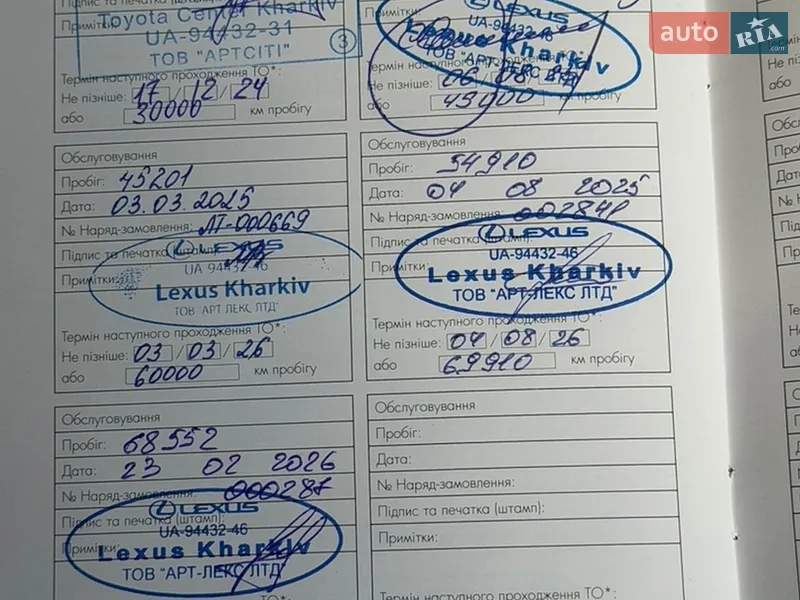 Toyota Center Kharkiv
UA-94432-31
ТОВ "АРТСІТІ"
3
Термін наступного проходження ТО*:
Не пізніше: 17 / 12 / 24
або 30000 км пробігу
Примітки:
LEXUS
Kharkiv
Термін наступного
Не пізніше: 06 / 08
або км пробігу
auto RIA.com
Обслуговування
Пробіг: 45201
Дата: 03.03.2025
№ Наряд-замовлення: ЛТ-000669
Підпис та печатка (штамп):
Примітки:
LEXUS
UA 94432-46
Lexus Kharkiv
ТОВ "АРТ ЛЕКС ЛТД"
Термін наступного проходження ТО*:
Не пізніше: 03 / 03 / 26
або 60000 км пробігу
Обслуговування
Пробіг: 54910
Дата: 04 08 2025
№ Наряд-замовлення: 002841
Підпис та печатка
Примітки:
LEXUS
UA-94432-46
Lexus Kharkiv
ТОВ "АРТ-ЛЕКС ЛТД"
Термін наступного проходження ТО*:
Не пізніше: 04 / 08 / 26
або 69910 км пробігу
Обслуговування
Пробіг: 68552
Дата: 23 02 2026
№ Наряд-замовлення: 000287
Підпис та печатка (штамп):
Примітки:
LEXUS
UA-94432-46
Lexus Kharkiv
ТОВ "АРТ-ЛЕКС ЛТД"
Обслуговування
Пробіг:
Дата:
№ Наряд-замовлення:
Підпис та печатка (штамп):
Примітки:
Термін наступного проходження ТО*: